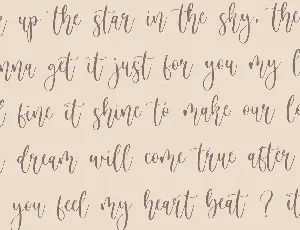 up the star in the sky, the
get it just for you my
fine it shine to make our
dream will come true after
you feel my heart beat ? it